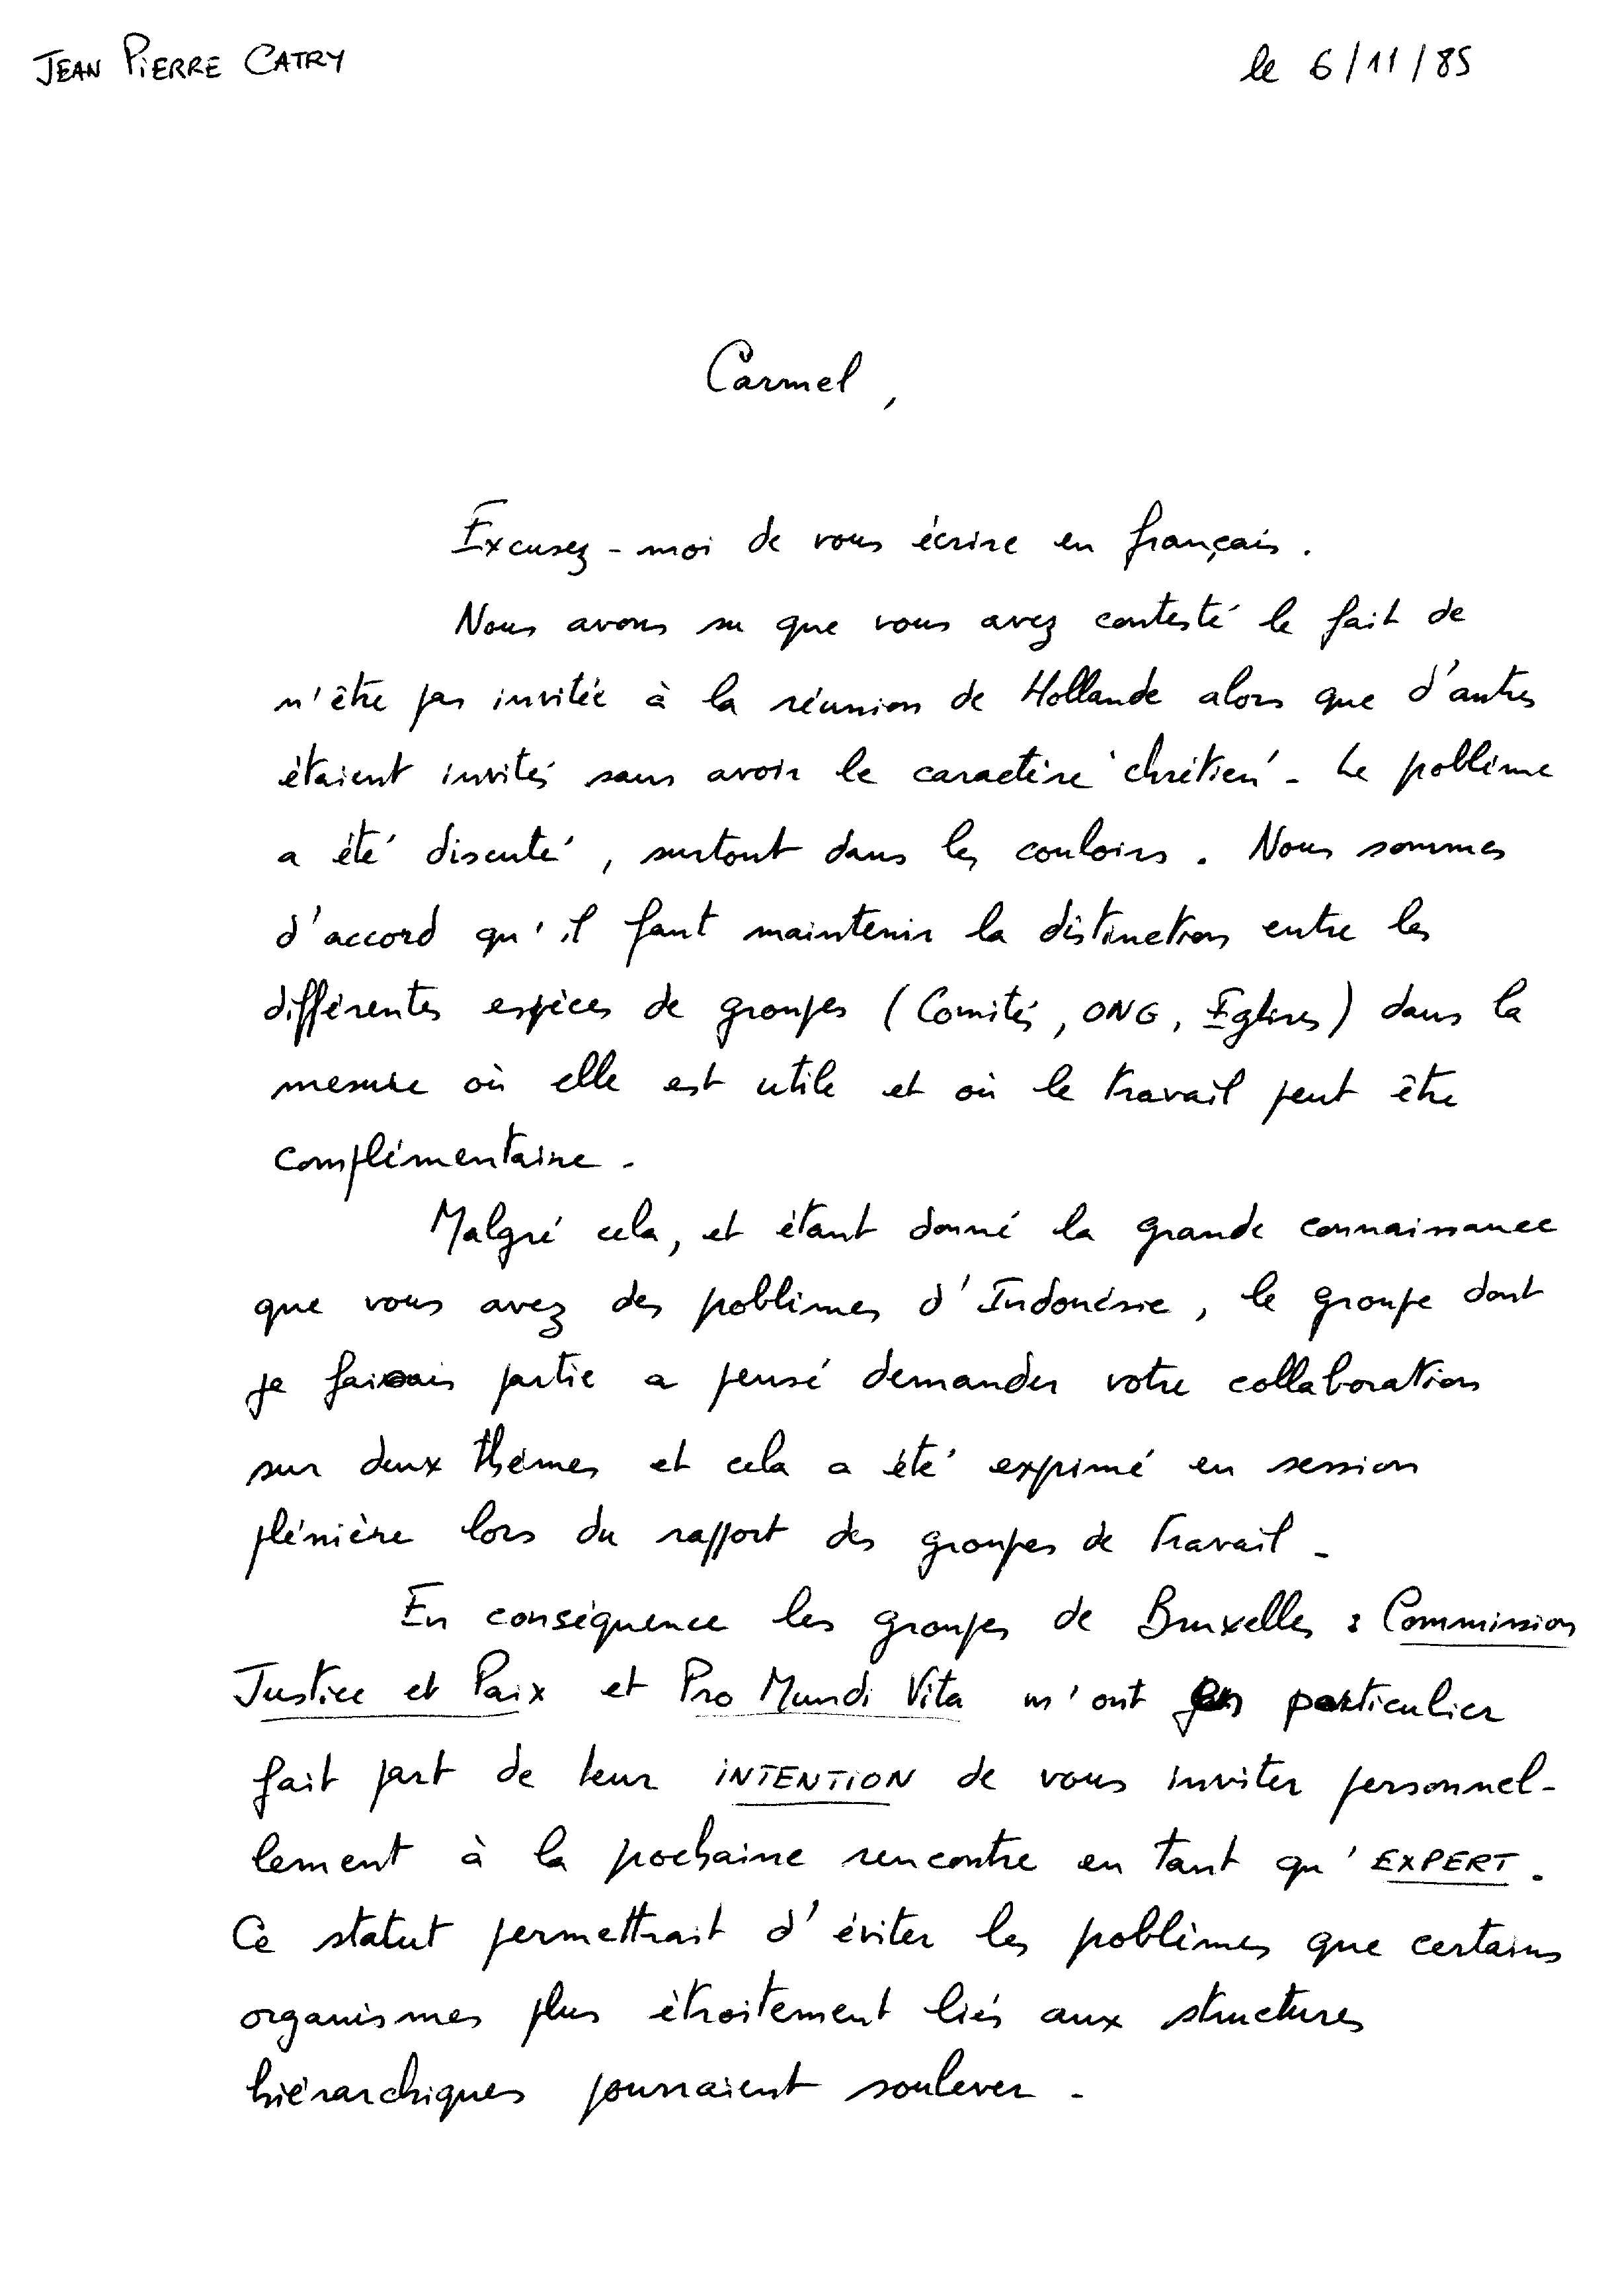 JEAN PIERRE CATRY
le 6/11/85
Carmel,
Excusez-moi de vous écrire en français.
Nous avons su que vous avez contesté le fait de
n'être pas invitée à la réunion de Hollande alors que d'autres
étaient invités sans avoir le caractère 'chrétien'. Le problème
a été discuté, surtout dans les couloirs. Nous sommes
d'accord qu'il faut maintenir la distinction entre les
différentes espèces de groupes (Comités, ONG, Eglises) dans la
mesure où elle est utile et où le travail peut être
complémentaire.
Malgré cela, et étant donné la grande connaissance
que vous avez des problèmes d'Indonésie, le groupe dont
je faisais partie a pensé demander votre collaboration
sur deux thèmes et cela a été exprimé en session
plénière lors du rapport des groupes de travail.
En conséquence les groupes de Bruxelles : Commission
Justice et Paix et Pro Mundi Vita m'ont en particulier
fait part de leur INTENTION de vous inviter personnel-
lement à la prochaine rencontre en tant qu'EXPERT.
Ce statut permettrait d'éviter les problèmes que certains
organismes plus étroitement liés aux structures
hiérarchiques pourraient soulever.